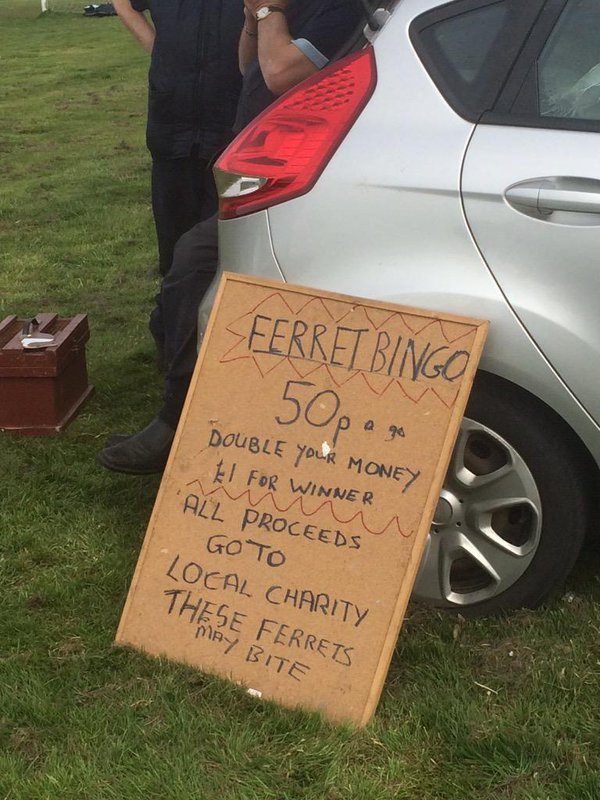 FERRET BINGO
50p a go
DOUBLE YOUR MONEY
£1 FOR WINNER
ALL PROCEEDS
GO TO
LOCAL CHARITY
THESE FERRETS
MAY BITE